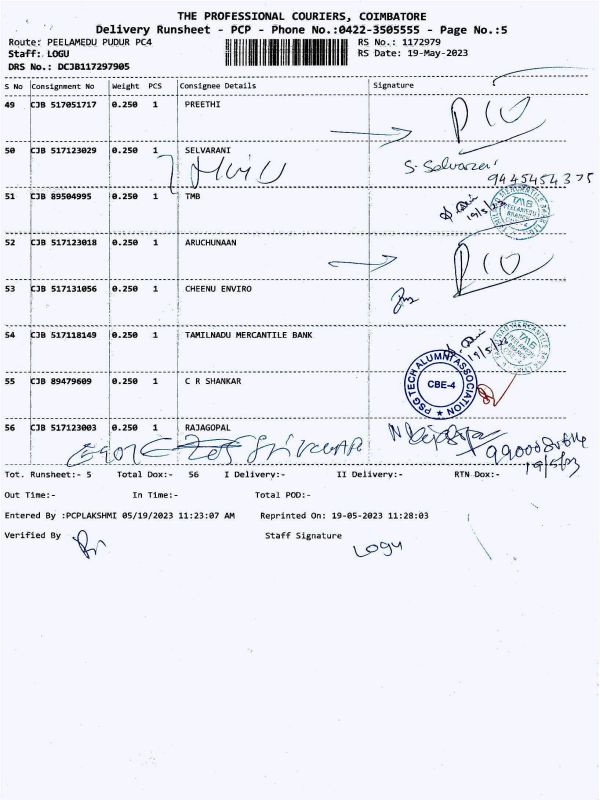 THE PROFESSIONAL COURIERS, COIMBATORE
Delivery Runsheet - PCP - Phone No.:0422-3505555 - Page No.:5
Route: PEELAMEDU PUDUR PC4 RS No.: 1172979
Staff: LOGU RS Date: 19-May-2023
DRS No.: DCJB117297905
S No Consignment No Weight PCS Consignee Details Signature
49 CJB 517051717 0.250 1 PREETHI
50 CJB 517123029 0.250 1 SELVARANI
S. Selvarani
9445454375
51 CJB 89504995 0.250 1 TMB
19/5/23
TMB
PEELAMEDU
BRANCH
52 CJB 517123018 0.250 1 ARUCHUNAAN
53 CJB 517131056 0.250 1 CHEENU ENVIRO
54 CJB 517118149 0.250 1 TAMILNADU MERCANTILE BANK
19/5/23
TMB
PEELAMEDU
BRANCH
55 CJB 89479609 0.250 1 C R SHANKAR
PSG TECH ALUMNI ASSOCIATION
CBE-4
56 CJB 517123003 0.250 1 RAJAGOPAL
19/5/23
Tot. Runsheet:- 5 Total Dox:- 56 I Delivery:- II Delivery:- RTN Dox:-
Out Time:- In Time:- Total POD:-
Entered By :PCPLAKSHMI 05/19/2023 11:23:07 AM Reprinted On: 19-05-2023 11:28:03
Verified By Staff Signature
LOGU